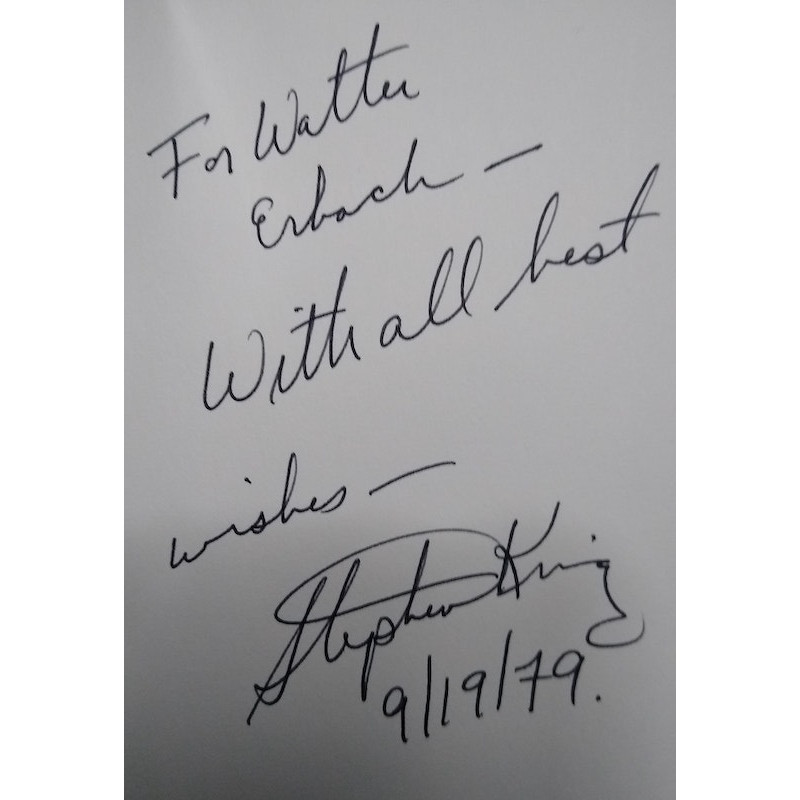 For Walter
Erbach —
With all best
wishes —
Stephen King
9/19/79.